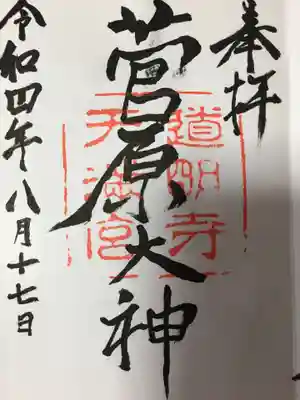 奉拝
道明寺
天満宮
菅原大神
令和四年八月十七日